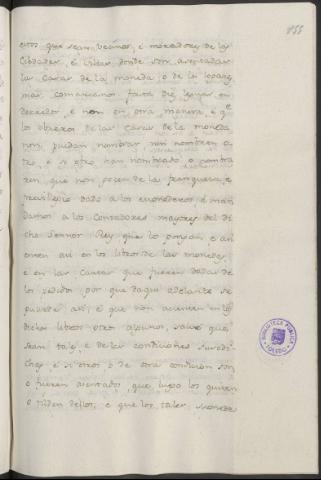 155
estos que sean vecinos, è moradores de las
Cibdades, è Villas donde son asentadas
las casas de la moneda, o de los logares
mas comarcanos fasta diez leguas en
derredor, è non en otra manera, è q.e
los obreros de las casas de la moneda
non puedan nombrar nin nombren a
tro, è si otro han nombrado o nombra
ren, que non gocen de la franqueza, è
previllegio dado a los monederos, è man
damos a los Contadores mayores del di
cho Señor Rey que lo pongan, è asi
enten asi en los libros de las monedas,
è en las cartas que fueren dadas de
los pedidos, por que daqui adelante se
guarde asi, è que non asienten en los
dichos libros otro algunos, salvo que
sean tales, è de las condiciones susodi
chas, è si otros o de otra condicion son
o fueren asentados, que luego los quiten
è tilden dellos, è que los tales monede
BIBLIOTECA PUBLICA
TOLEDO